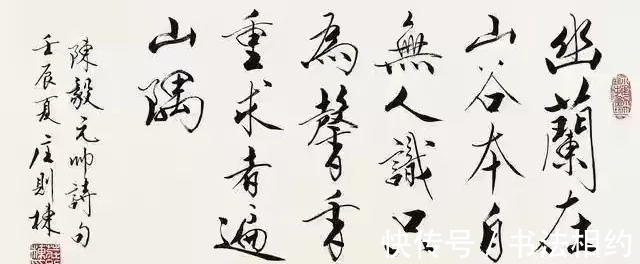 幽蘭在
山谷本自
無人識只
為馨香
重求者遍
山隅
陳毅元帥詩句
壬辰夏庄則棟
快传号/书法相约